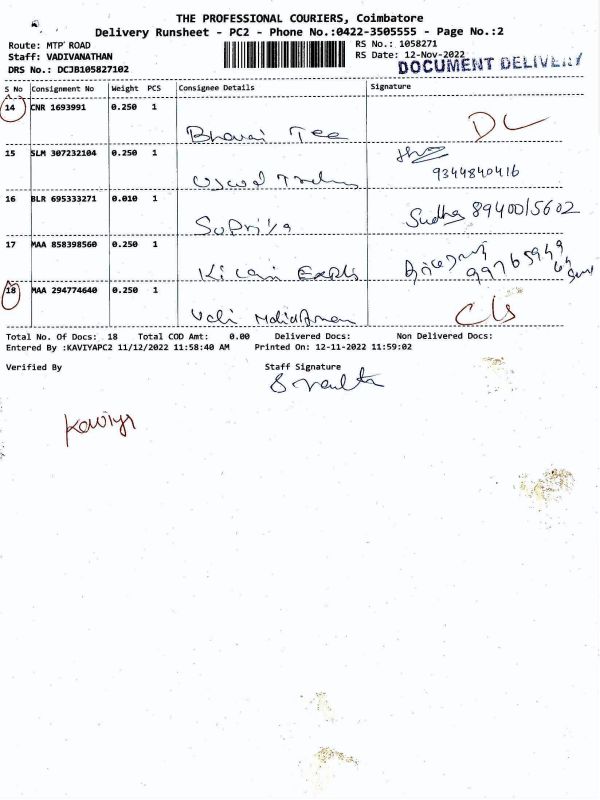 THE PROFESSIONAL COURIERS, Coimbatore
Delivery Runsheet - PC2 - Phone No.:0422-3505555 - Page No.:2
Route: MTP ROAD RS No.: 1058271
Staff: VADIVANATHAN RS Date: 12-Nov-2022
DRS No.: DCJB105827102 DOCUMENT DELIVERY
S No Consignment No Weight PCS Consignee Details Signature
14 CNR 1693991 0.250 1
DL
15 SLM 307232104 0.250 1
9344840416
16 BLR 695333271 0.010 1
SuPriya Sudha 8940015602
17 MAA 858398560 0.250 1
18 MAA 294774640 0.250 1
Total No. Of Docs: 18 Total COD Amt: 0.00 Delivered Docs: Non Delivered Docs:
Entered By :KAVIYAPC2 11/12/2022 11:58:40 AM Printed On: 12-11-2022 11:59:02
Verified By Staff Signature
Kaviya